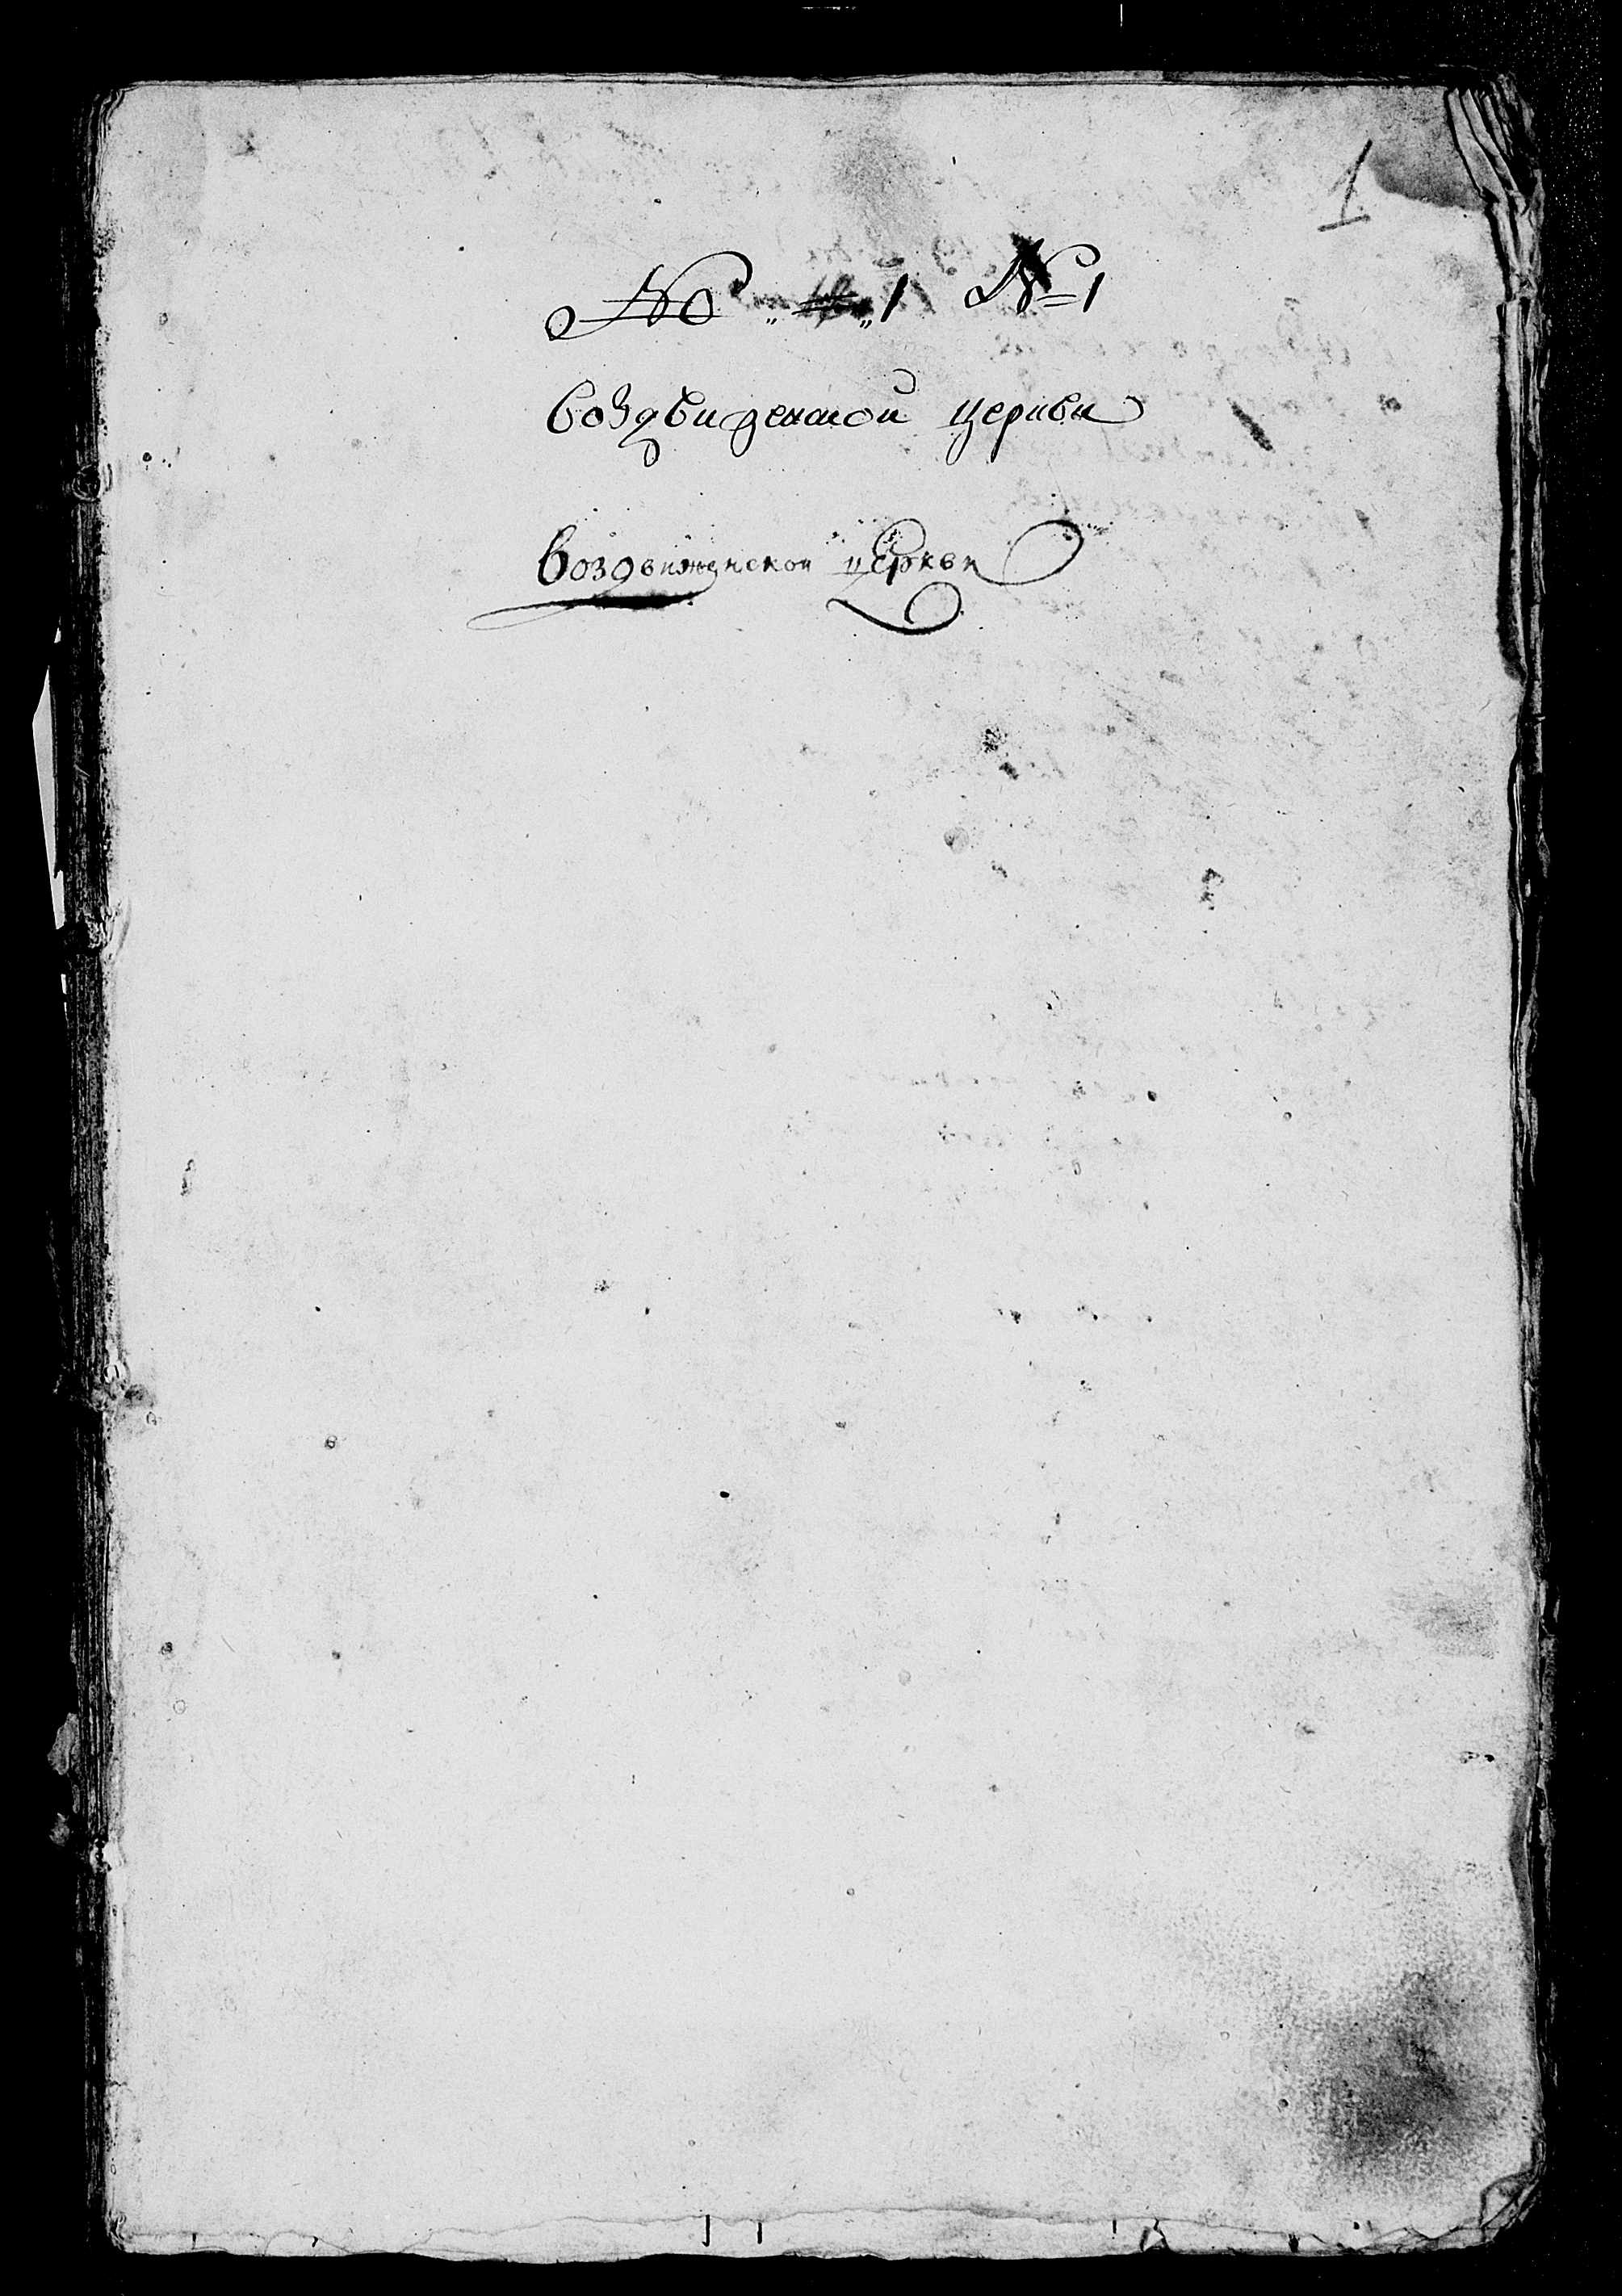 1
№ 1 № 1
Воздвиженской церкви
Воздвижднской церкви